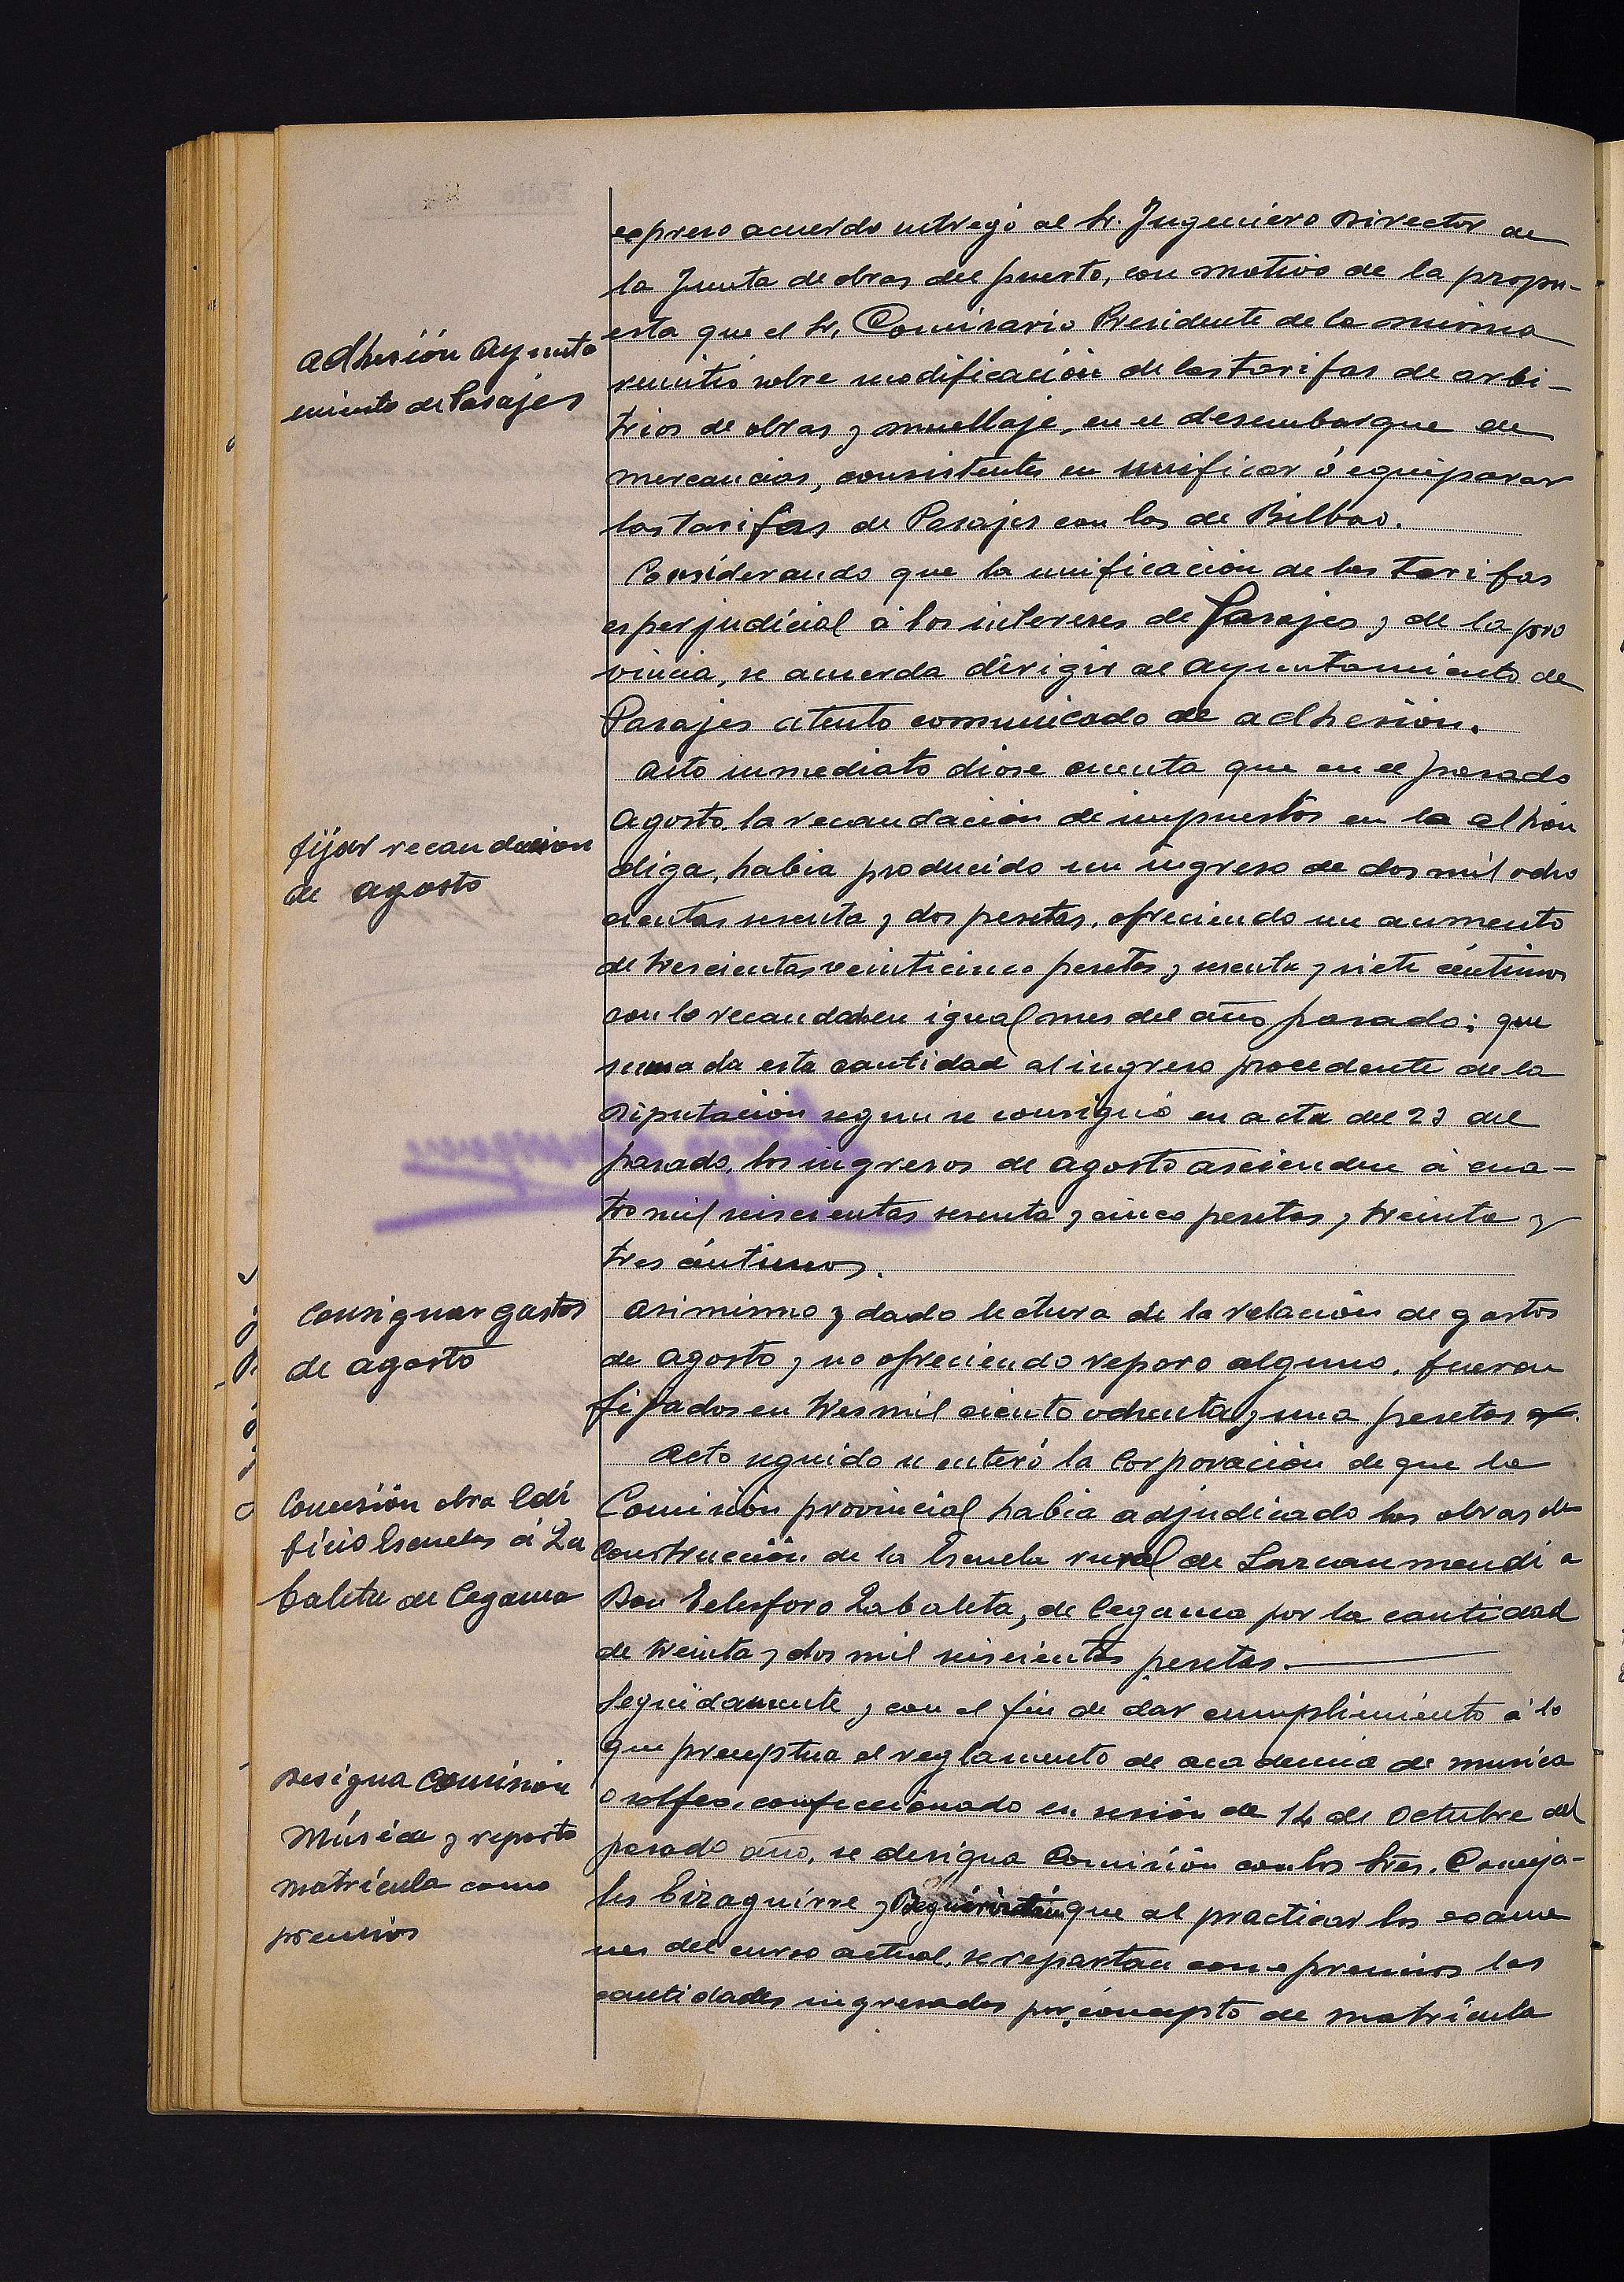 expreso acuerdo entregó al Sr. Ingeniero Director de
la Junta de obras del puerto, con motivo de la propu-
esta que el Sr. Comisario Presidente de la misma
remitió sobre modificación de las tarifas de arbi-
trios de obras y muellaje, en el desembarque de
mercancias, consistentes en unificar ó equiparar
las tarifas de Pasajes con las de Bilbao.
Adhesión Ayunta
miento de Pasajes
Considerando que la unificación de las tarifas
es perjudicial á los intereses de Pasajes y de la pro
vincia, se acuerda dirigir al Ayuntamiento de
Pasajes atento comunicado de adhesión.
Acto inmediato diose cuenta que en el pasado
Agosto, la recaudación de impuestos en la alhón
diga, habia producido un ingreso de dos mil ocho
cientas sesenta y dos pesetas, ofreciendo un aumento
de trescientas veinticinco pesetas y sesenta y siete céntimos
con lo recaudado en igual mes del año pasado; que
sumada esta cantidad al ingreso procedente de la
Diputación segun se consignó en acta del 23 del
pasado, los ingresos de Agosto ascienden á cua-
tro mil seiscientas sesenta y cinco pesetas y treinta y
tres céntimos.
fijar recaudacion
de agosto
Asimismo y dado lectura de la relación de gastos
de Agosto y no ofreciendo reparo alguno, fueron
fijados en tres mil ciento ochenta y una pesetas
Consignar gastos
de agosto
Acto seguido se enteró la Corporación de que la
Comisión provincial habia adjudicado las obras de
Construcción de la Escuela rural de Larcaumendi a
Don Telesforo Zabaleta, de Cegama por la cantidad
de treinta y dos mil seiscientas pesetas.
Concesión obra Edi
ficio Escuelas á Za
baleta de Cegama
Seguidamente y con el fin de dar cumplimiento á lo
que preceptua el reglamento de academia de musica
o solfeo, confeccionado en sesión de 14 de Octubre del
pasado año, se designa Comisión con los Sres. Conceja-
les Eizaguirre y que al practicar los exame
nes del curso actual, se repartan como premios las
cantidades ingresadas por concepto de matrícula
Designa Comisión
Música y reparto
matrícula como
premios